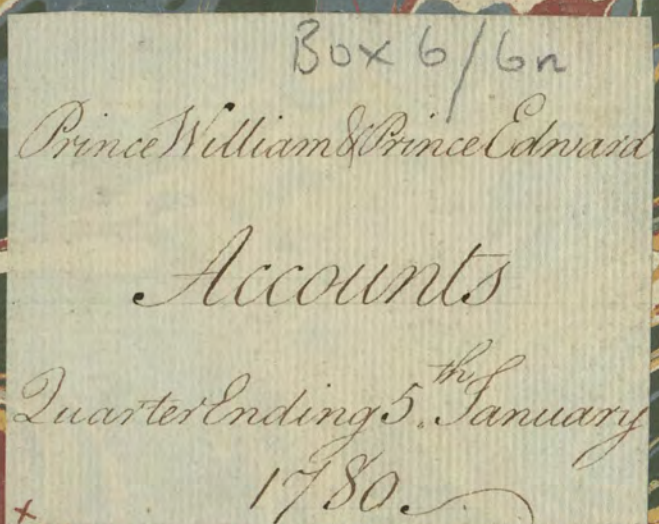 Box 6/6n
Prince William & Prince Edward
Accounts
Quarter Ending 5.th January
1780.
x